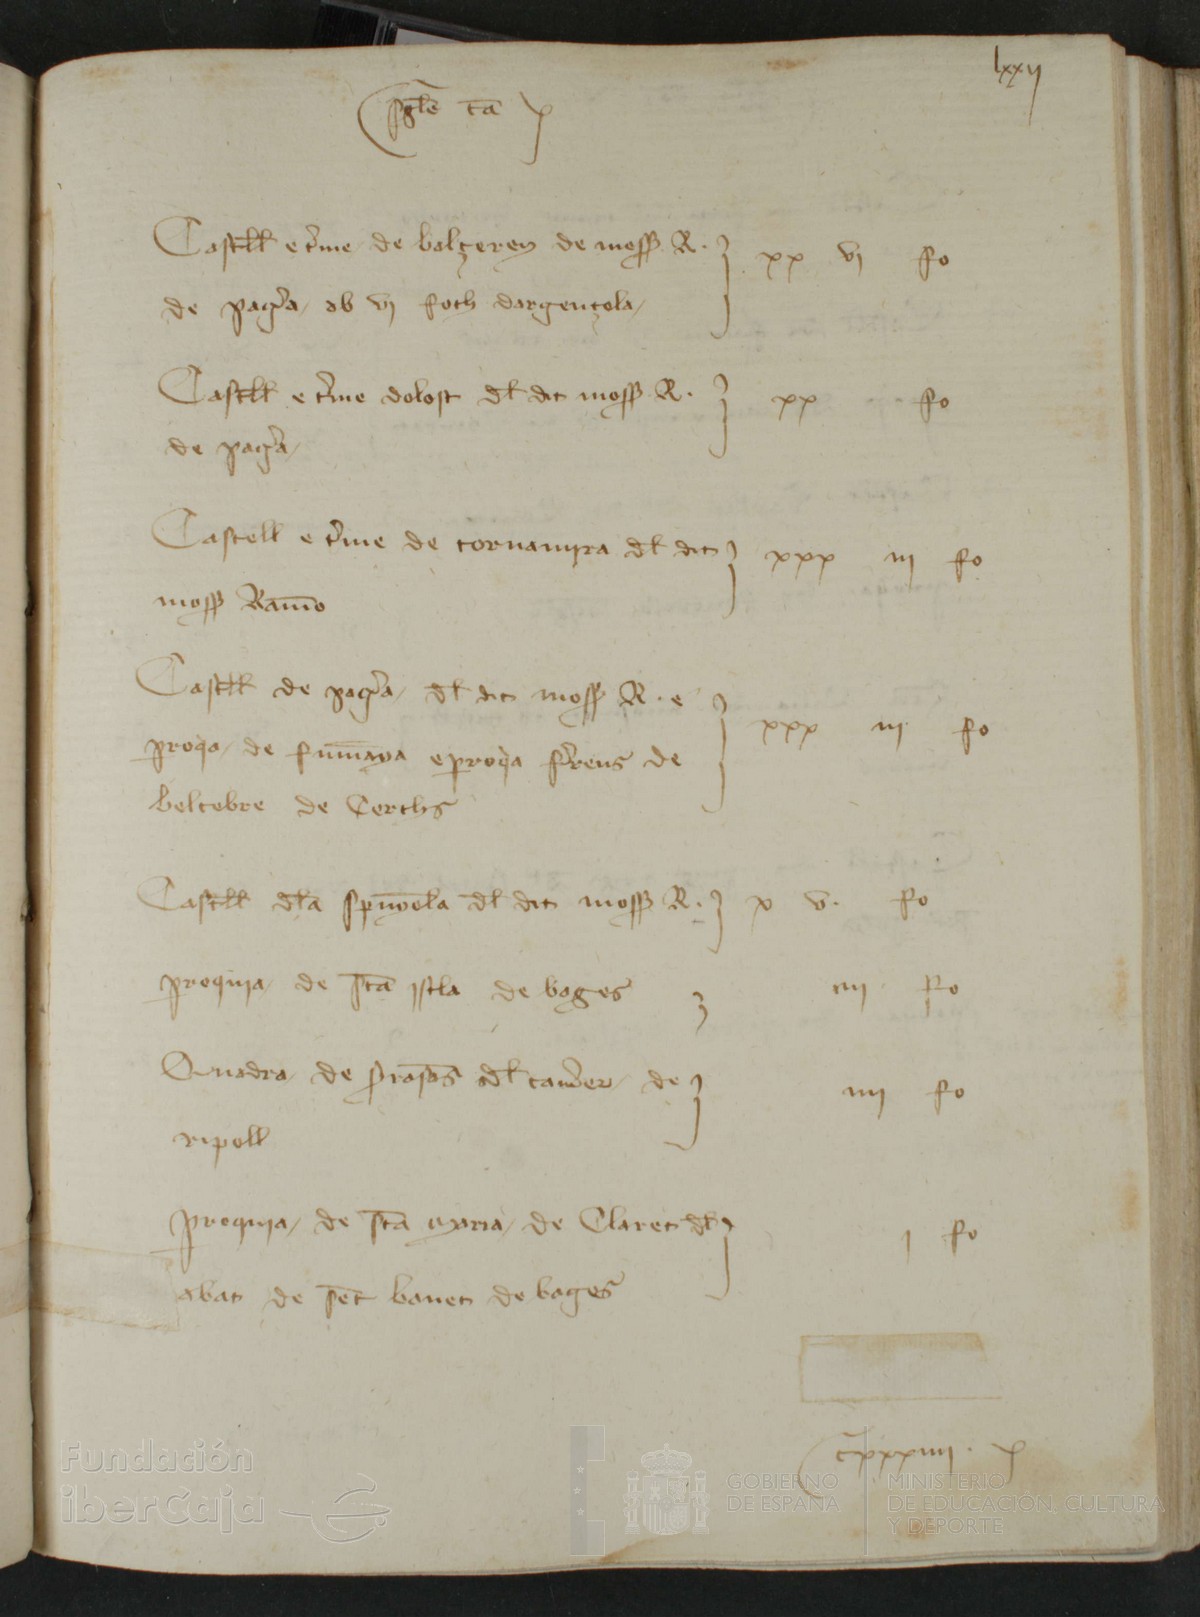 lxxij
Castell e t'me de balçereny de moss R.
de pag'a ab vj foch dargençola
xx vj fo
Castell e t'me dolost dl dit moss R.
de pag'a
xx fo
Castell e t'me de tornamira dl dit
moss Ramo
xxx iij fo
Castell de pag'a dl dit moss R. e
proqa de fumaya e proqia f'rens de
belcebre de Cerchs
xxx iij fo
Castell dla spuyola dl dit moss R.
x v. fo
proquia de sta iscla de bages
iiij fo
Quadra de dl cam'er de
ripoll
iiij fo
proquia de sta maria de Claret dl
abat de set benet de bages
j fo
cxxxiiij.
Fundación
iberCaja
GOBIERNO
DE ESPAÑA
MINISTERIO
DE EDUCACIÓN, CULTURA
Y DEPORTE